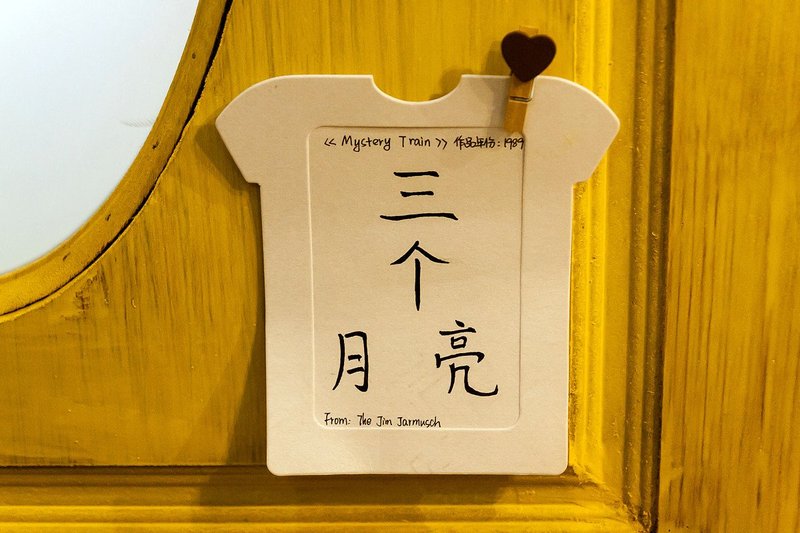 << Mystery Train >> 作品年份:1989
三
个
月 亮
From: The Jim Jarmusch